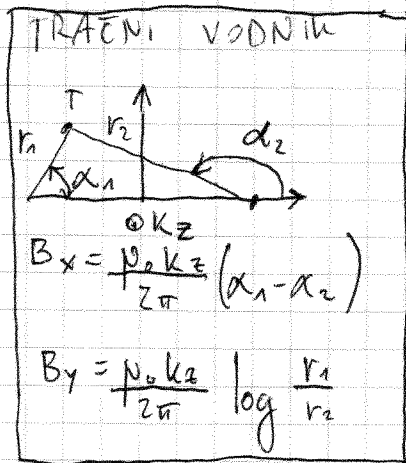 TRAČNI VODNIK
T
r₁ r₂ α₂
α₁
⊙ K_z
B_x = μ₀ k_z / 2π (α₁ - α₂)
B_y = μ₀ k_z / 2π log r₁ / r₂